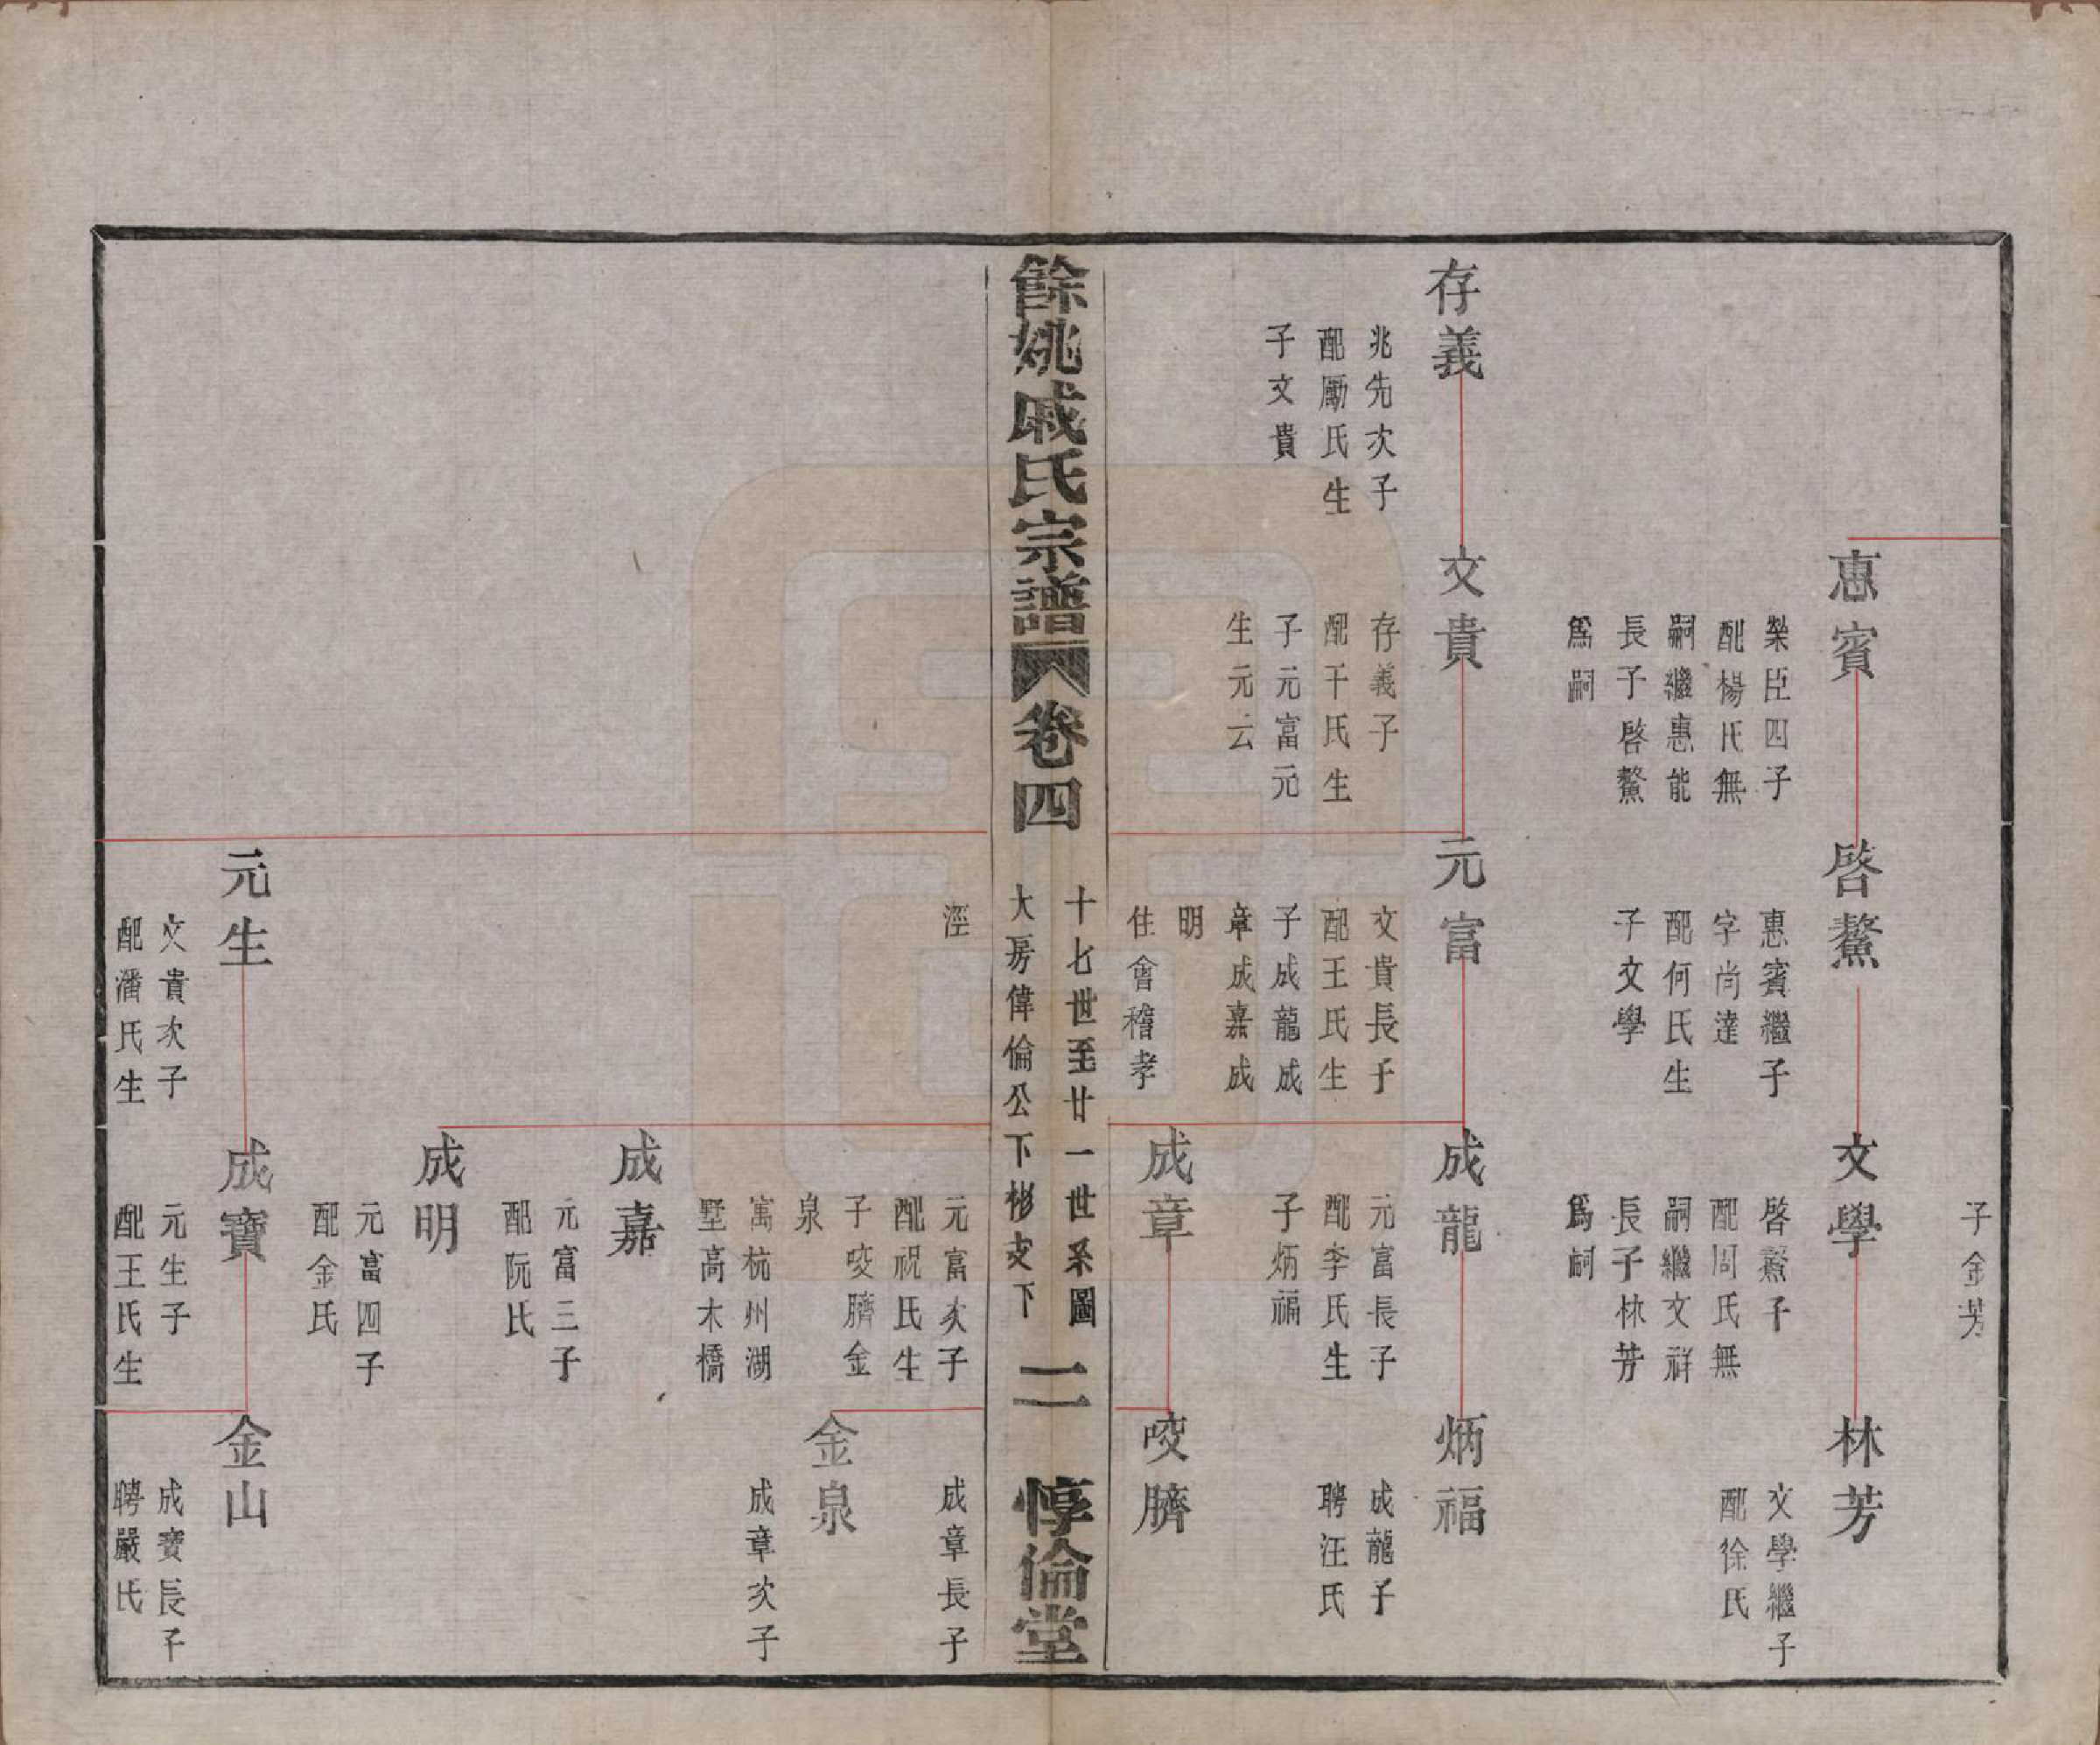 子金芳
惠賓
榮臣四子
配楊氏無
嗣繼惠能
長子啓鰲
爲嗣
啓鰲
惠賓繼子
字尚達
配何氏生
子文學
文學
啓鰲子
配周氏無
嗣繼文祥
長子林芳
爲嗣
林芳
文學繼子
配徐氏
存義
兆先次子
配勵氏生
子文貴
文貴
存義子
配干氏生
子元富元
生元云
元富
文貴長子
配王氏生
子成龍成
章成嘉成
明
住會稽孝
成龍
元富長子
配李氏生
子炳福
炳福
成龍子
聘汪氏
成章
咬臍
餘姚戚氏宗譜
卷四
十七世至廿一世系圖
大房偉倫公下彬支下
二
惇倫堂
涇
元富次子
配祝氏生
子咬臍金
泉
寓杭州湖
墅高木橋
成章長子
金泉
成章次子
成嘉
元富三子
配阮氏
成明
元富四子
配金氏
元生
文貴次子
配潘氏生
成寶
元生子
配王氏生
金山
成寶長子
聘嚴氏